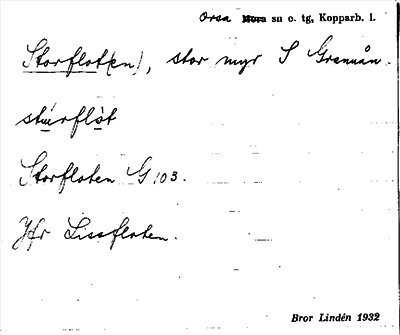 Orsa Mora sn o. tg, Kopparb. l.
Storflot(en), stor myr S Grannån.
Storfloten G:03.
Jfr Lissfloten.
Bror Lindén 1932